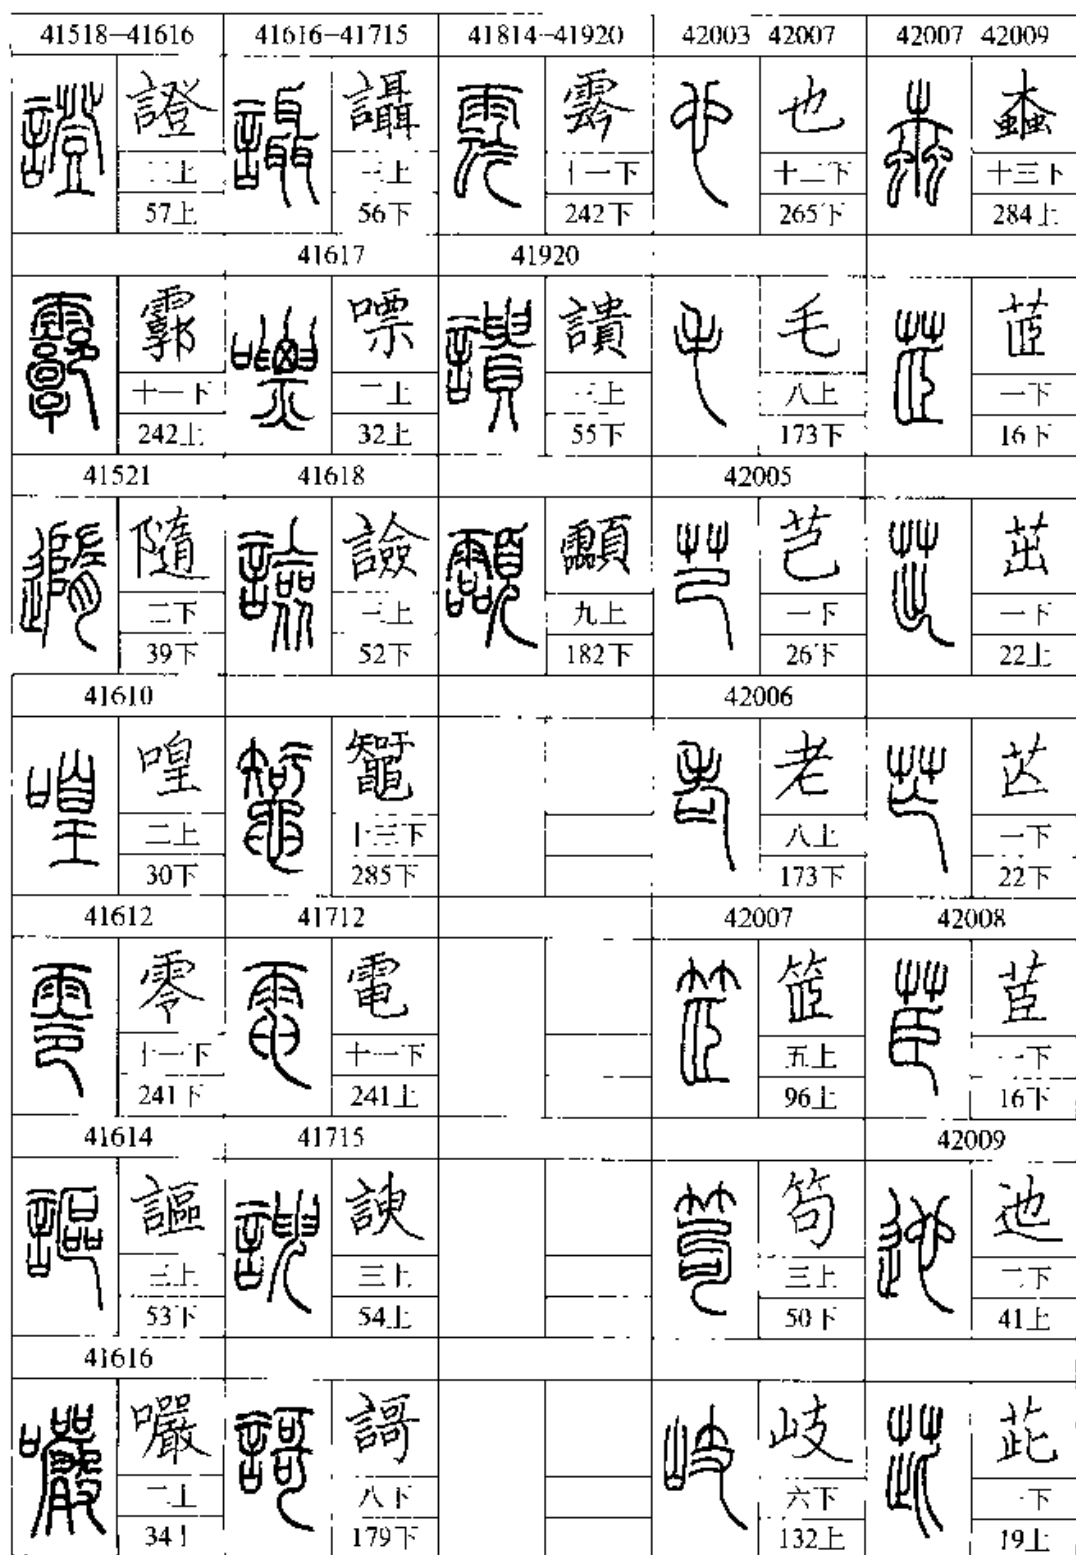 41518-41616
證
二上
57上
霩
十一下
242上
41521
隨
二下
39下
41610
喤
二上
30下
41612
零
十一下
241下
41614
謳
三上
53下
41616
嚴
二上
34上
41616-41715
讘
三上
56下
41617
嘌
二上
32上
41618
譣
三上
52下
十三下
285下
41712
電
十一下
241上
41715
諛
三上
54上
謌
八下
179下
41814-41920
十一下
242下
41920
三上
55下
九上
182下
42003 42007
也
十二下
265下
毛
八上
173下
42005
芑
一下
26下
42006
老
八上
173下
42007
五上
96上
笱
三上
50下
岐
六下
132上
42007 42009
十三下
284上
茝
一下
16下
茁
一下
22上
一下
22下
42008
茞
一下
16下
42009
迆
二下
41上
茈
一下
19上